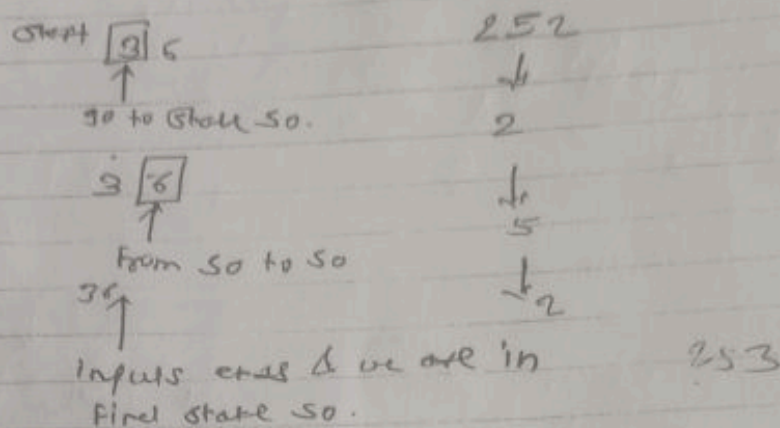 Start 3 6
go to state so.
3 6
from so to so
36
inputs ends & we are in
final state so.
252
2
5
2
253